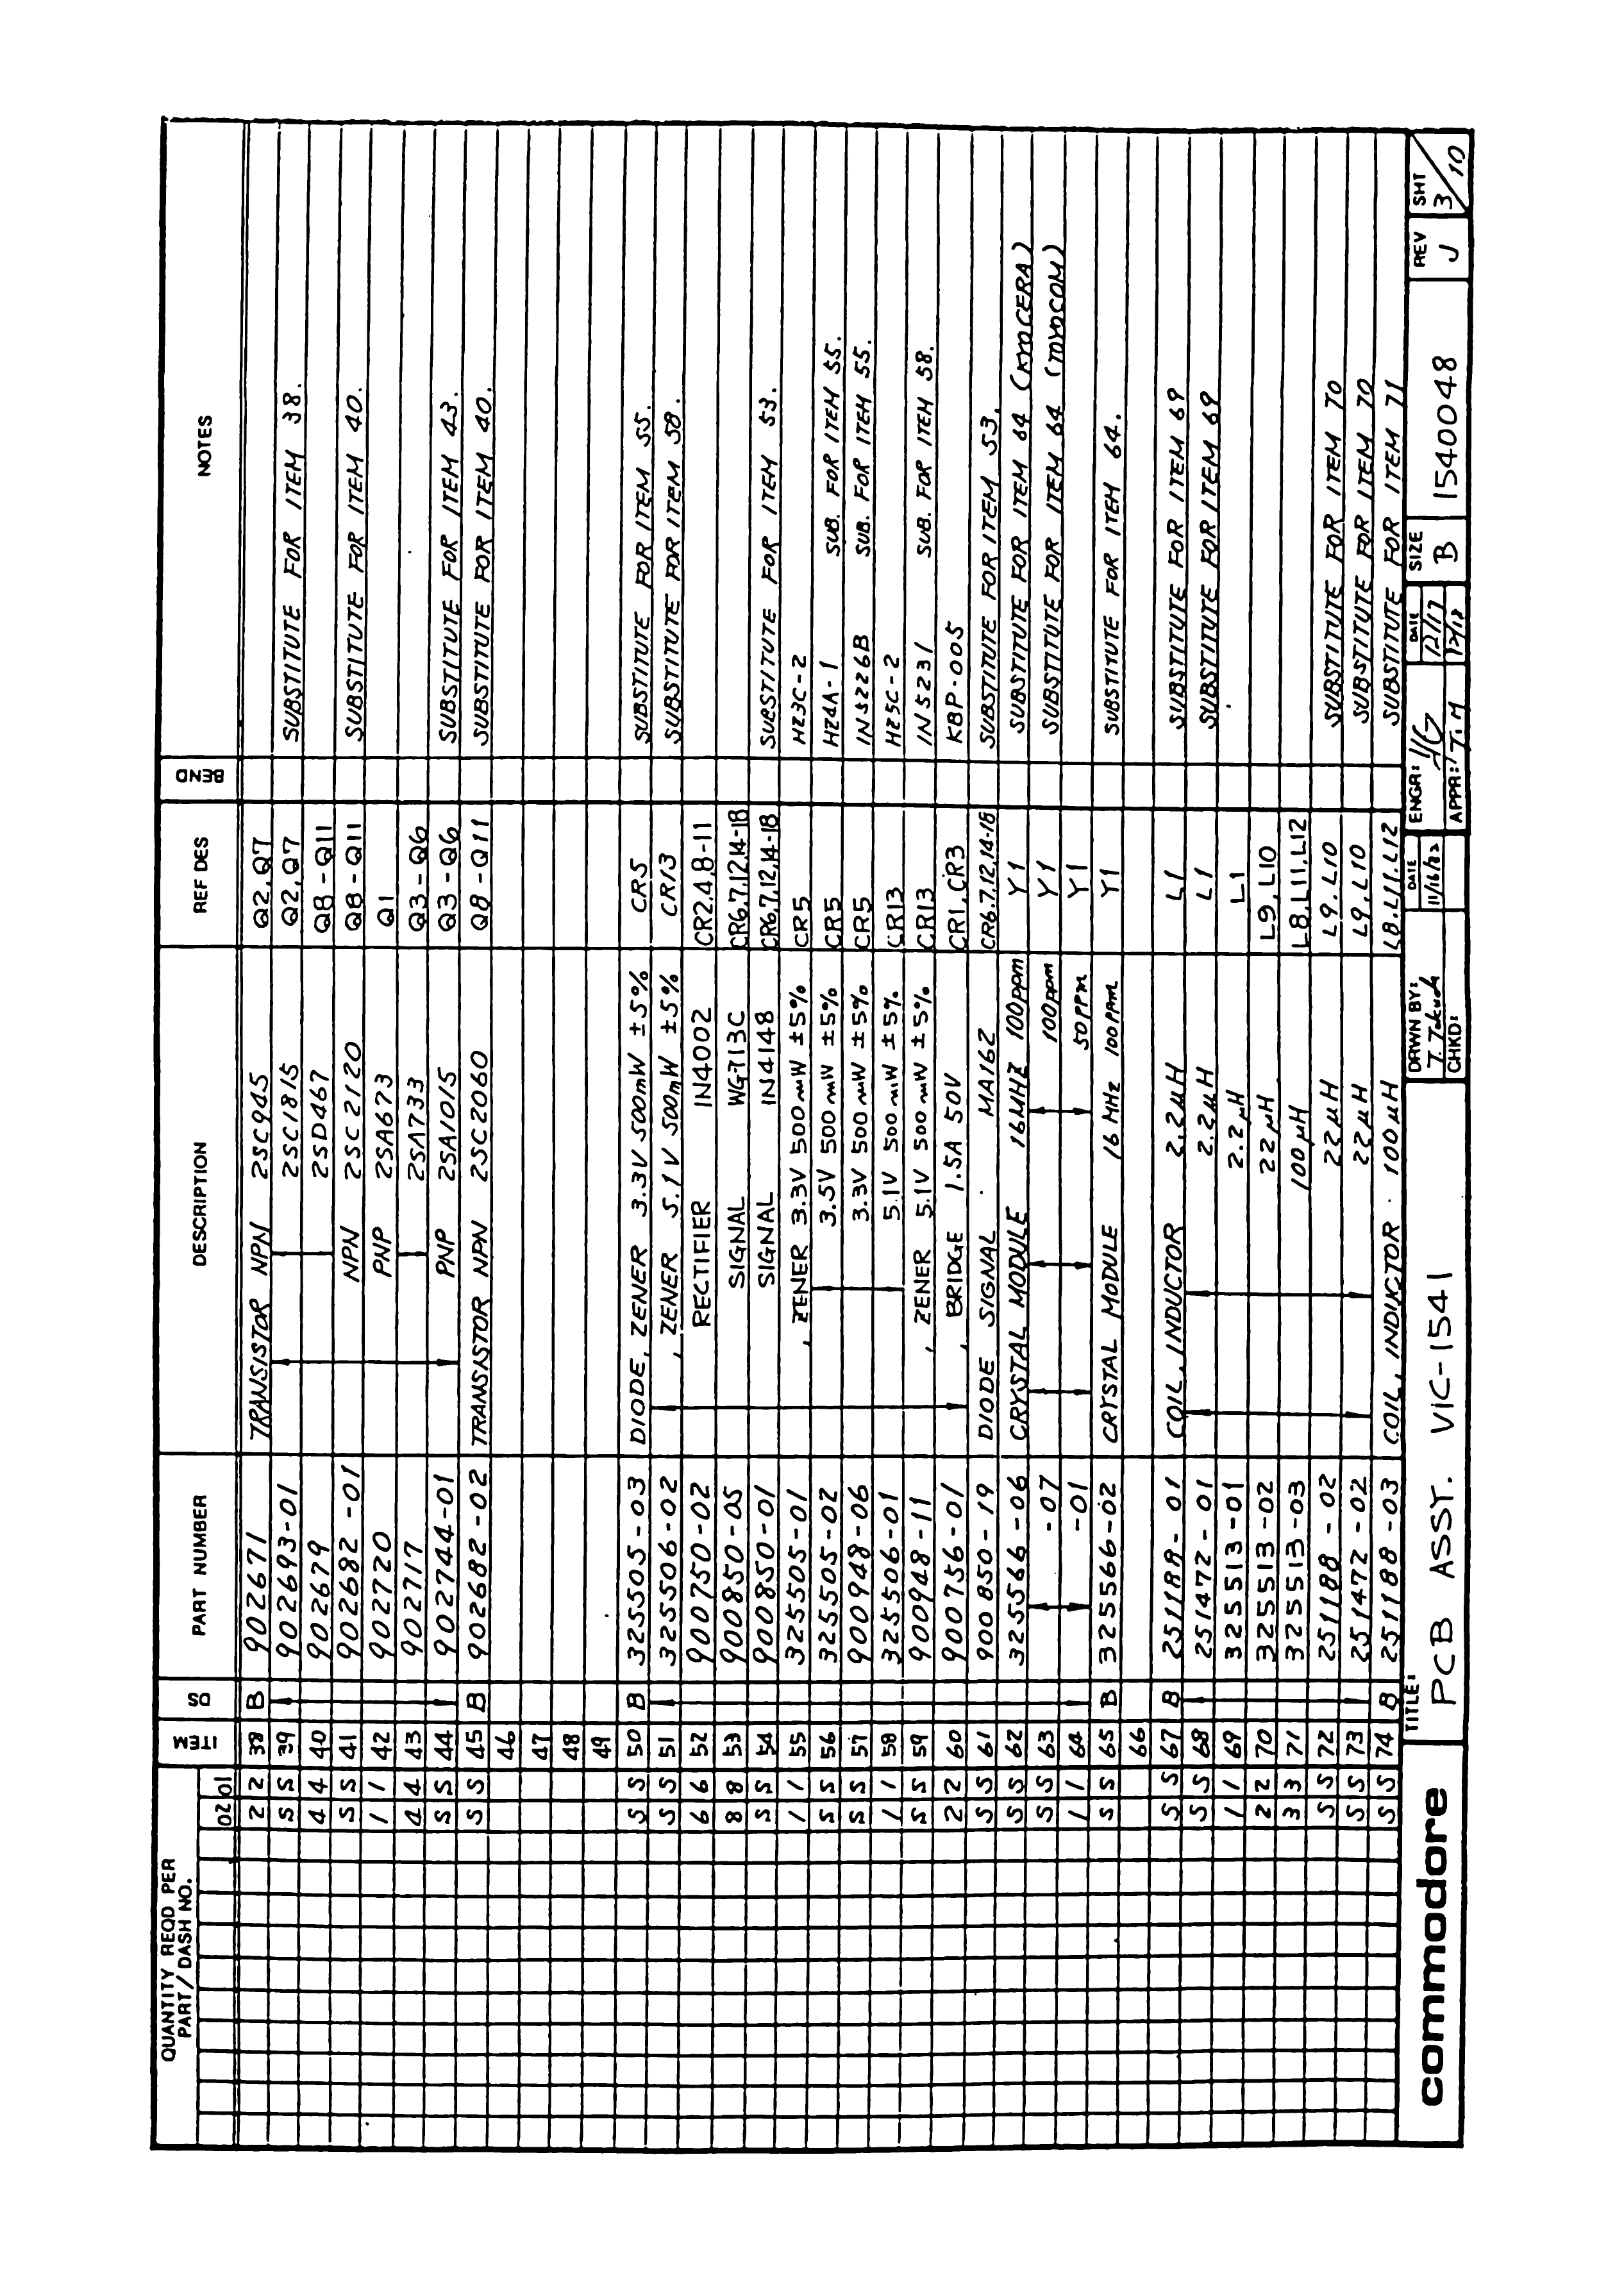 QUANTITY REQD PER PART/DASH NO. ITEM DS PART NUMBER DESCRIPTION REF DES BEND NOTES
02 01
2 2 38 B 902671 TRANSISTOR NPN 2SC945 Q2,Q7
S S 39 902693-01 2SC1815 Q2,Q7 SUBSTITUTE FOR ITEM 38.
4 4 40 902679 2SD467 Q8-Q11
S S 41 902682-01 NPN 2SC2120 Q8-Q11 SUBSTITUTE FOR ITEM 40.
1 1 42 902720 PNP 2SA673 Q1
4 4 43 902717 2SA733 Q3-Q6
S S 44 902744-01 PNP 2SA1015 Q3-Q6 SUBSTITUTE FOR ITEM 43.
S S 45 B 902682-02 TRANSISTOR NPN 2SC2060 Q8-Q11 SUBSTITUTE FOR ITEM 40.
46
47
48
49
S S 50 B 325505-03 DIODE, ZENER 3.3V 500mW ±5% CR5 SUBSTITUTE FOR ITEM 55.
S S 51 325506-02 , ZENER 5.1V 500mW ±5% CR13 SUBSTITUTE FOR ITEM 58.
6 6 52 900750-02 RECTIFIER IN4002 CR2,4,8-11
8 8 53 900850-05 SIGNAL WG713C CR6,7,12,14-18
S S 54 900850-01 SIGNAL IN4148 CR6,7,12,14-18 SUBSTITUTE FOR ITEM 53.
1 1 55 325505-01 , ZENER 3.3V 500mW ±5% CR5 HZ3C-2
S S 56 325505-02 3.5V 500mW ±5% CR5 HZ4A-1 SUB. FOR ITEM 55.
S S 57 900948-06 3.3V 500mW ±5% CR5 IN5226B SUB. FOR ITEM 55.
1 1 58 325506-01 5.1V 500mW ±5% CR13 HZ5C-2
S S 59 900948-11 , ZENER 5.1V 500mW ±5% CR13 IN5231 SUB. FOR ITEM 58.
2 2 60 900756-01 , BRIDGE 1.5A 50V CR1,CR3 KBP-005
S S 61 900850-19 DIODE SIGNAL MA162 CR6,7,12,14-18 SUBSTITUTE FOR ITEM 53.
S S 62 325566-06 CRYSTAL MODULE 16MHZ 100ppm Y1 SUBSTITUTE FOR ITEM 64 (KYOCERA)
S S 63 -07 100ppm Y1 SUBSTITUTE FOR ITEM 64 (MYOCOM)
1 1 64 -01 50PPm Y1
S S 65 B 325566-02 CRYSTAL MODULE 16MHz 100PPM Y1 SUBSTITUTE FOR ITEM 64.
66
S S 67 B 251188-01 COIL, INDUCTOR 2.2µH L1 SUBSTITUTE FOR ITEM 69
S S 68 251472-01 2.2µH L1 SUBSTITUTE FOR ITEM 69
1 1 69 325513-01 2.2µH L1
2 2 70 325513-02 22µH L9,L10
3 3 71 325513-03 100µH L8,L11,L12
S S 72 251188-02 22µH L9,L10 SUBSTITUTE FOR ITEM 70
S S 73 251472-02 22µH L9,L10 SUBSTITUTE FOR ITEM 70
S S 74 B 251188-03 COIL, INDUCTOR 100µH L8,L11,L12 SUBSTITUTE FOR ITEM 71
commodore
TITLE:
PCB ASSY. VIC-1541
DRAWN BY: DATE 11/16/82
CHKD:
ENGR: DATE 12/17
APPR: T.M 12/18
SIZE B 1540048
REV J
SHT 3/10